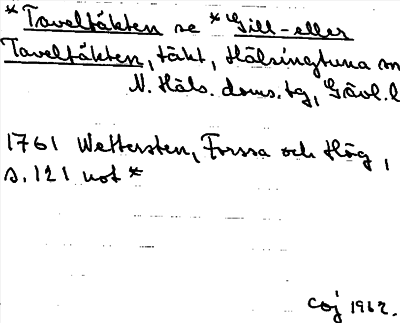 *Taveltäkten se *Gill- eller
Taveltäkten, täkt, Hälsingtuna sn
N. Häls. doms. tg, Gävl. l
1761 Wettersten, Forssa och Hög,
s. 121 not *
CGJ 1962.